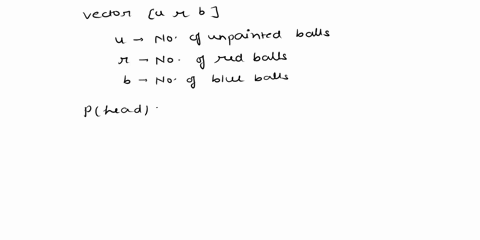 vector [u r b]
u → No. of unpainted balls
r → No. of red balls
b → No. of blue balls
P(head) .